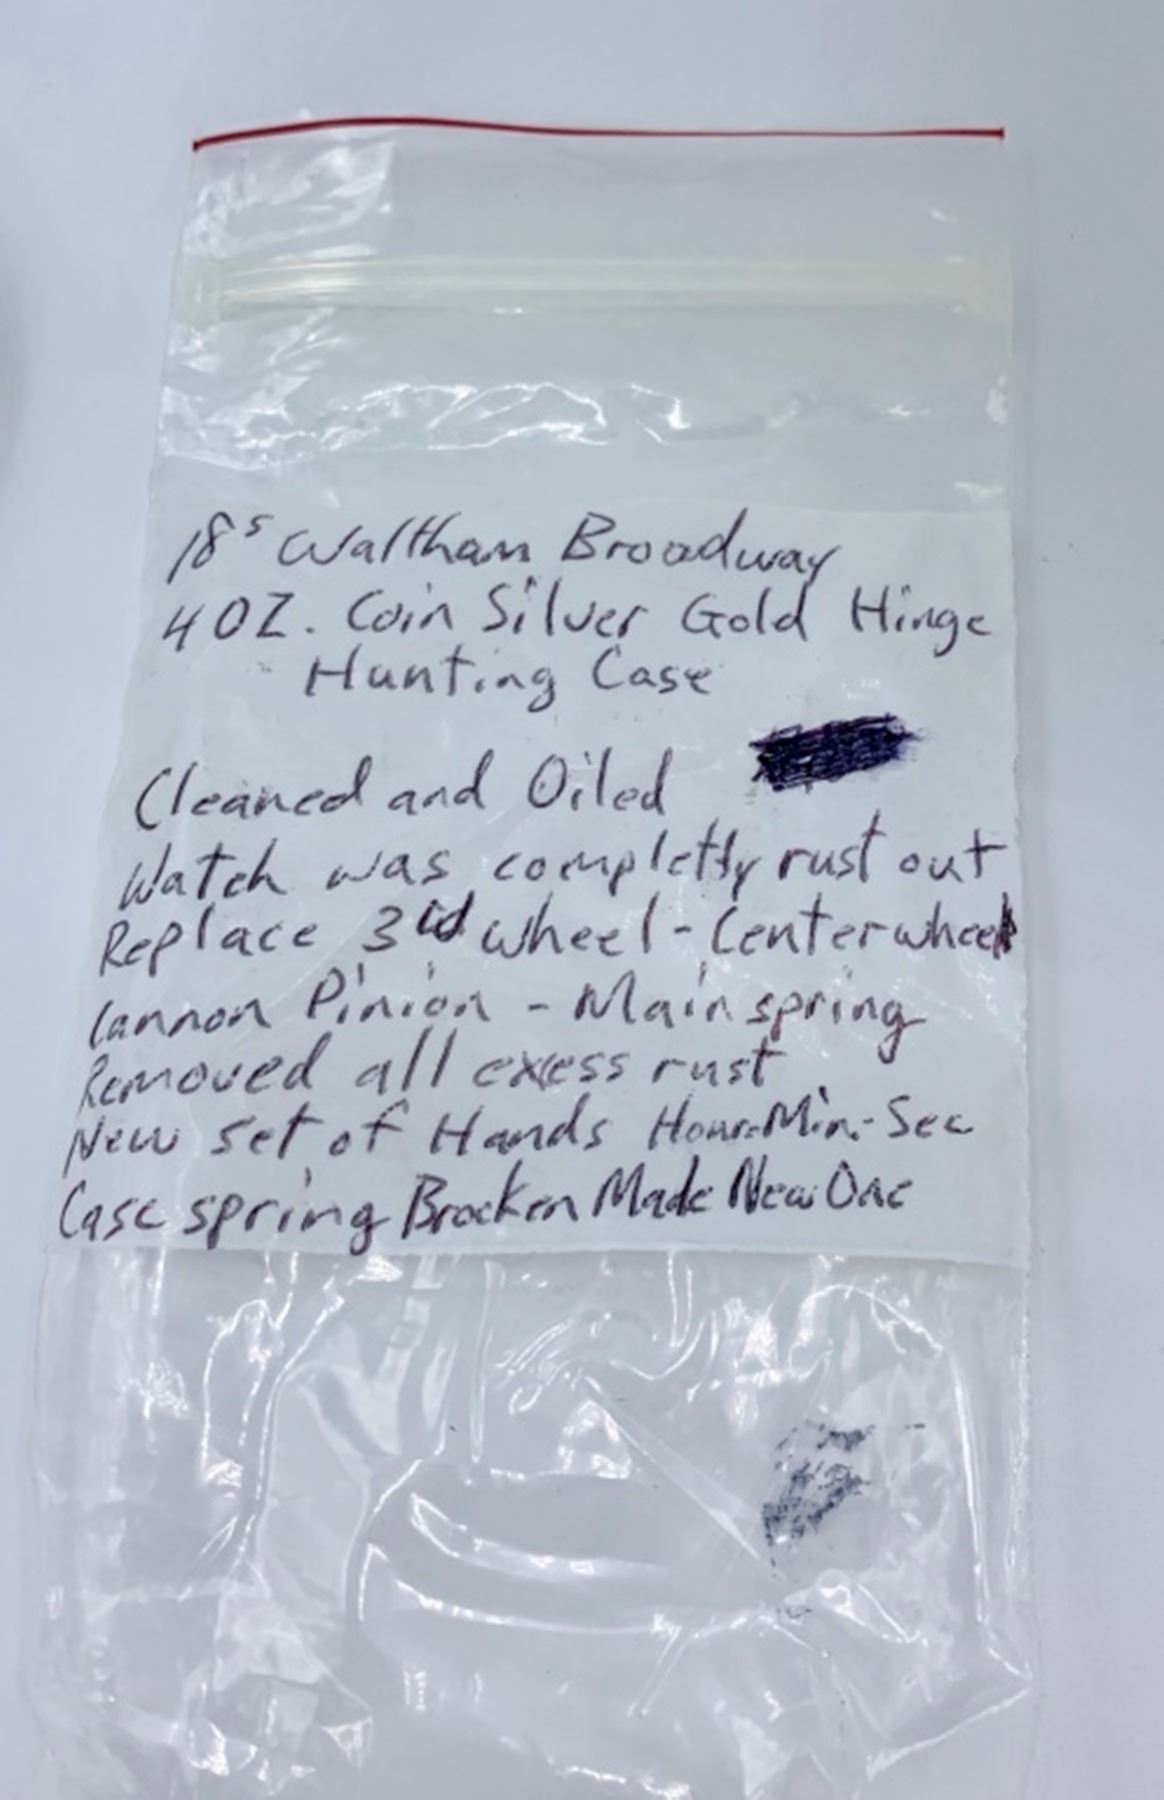 18s Waltham Broadway
4 OZ. Coin Silver Gold Hinge
Hunting Case
Cleaned and Oiled
Watch was completty rust out
Replace 3rd wheel - Centerwheel
Cannon Pinion - Mainspring
Removed all exess rust
New set of Hands Hour-Min.-Sec
Case spring Brocken Made New One